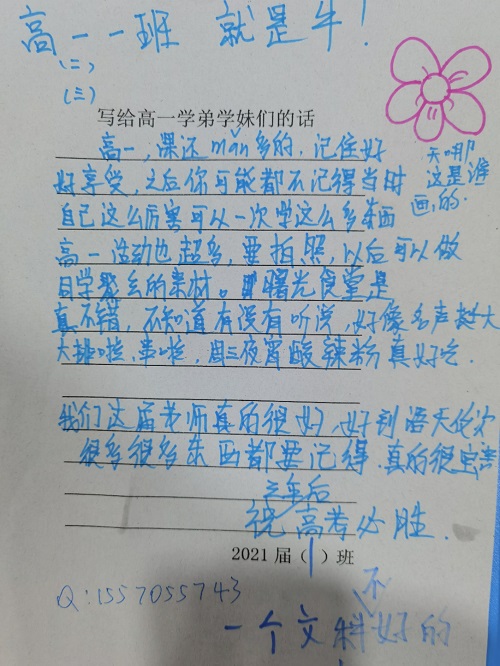 高一一班 就是牛！
（二）
（三）
写给高一学弟学妹们的话
高一，课还mǎn多的.记住好
好享受，之后你可能都不记得当时
自己这么厉害可以一次学这么多东西
天哪
这是谁
画的.
高一活动也超多，要拍照，以后可以做
同学聚会的素材。曙光食堂是
真不错，不知道有没有听说，好像名声挺大
大排啦、串啦，周三夜宵酸辣粉真好吃.
我们这届老师真的很好，好到语无伦次
很多很多东西都要记得.真的很宝贵
三年后
祝高考必胜.
2021届（1）班
Q:1557055743
一个文科不好的